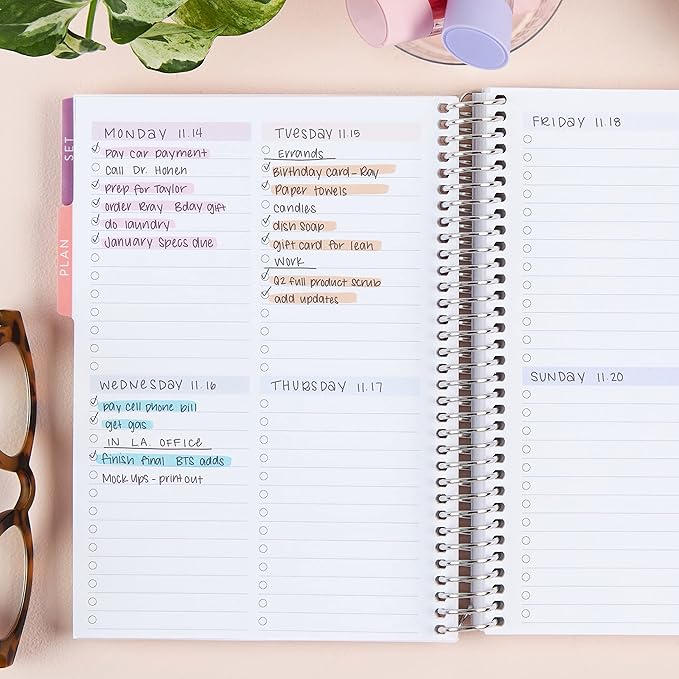 SET
PLAN
MONDAY 11.14
pay car payment
Call Dr. Honen
prep for Taylor
order Rray Bday gift
do laundry
January Specs due
TUESDAY 11.15
Errands
Birthday card - Ray
Paper towels
candles
dish soap
gift card for leah
WORK
Q2 full product scrub
add updates
WEDNESDAY 11.16
pay cell phone bill
get gas
IN L.A. OFFICE
finish final BTS adds
Mock ups - print out
THURSDAY 11.17
FRIDAY 11.18
SUNDAY 11.20